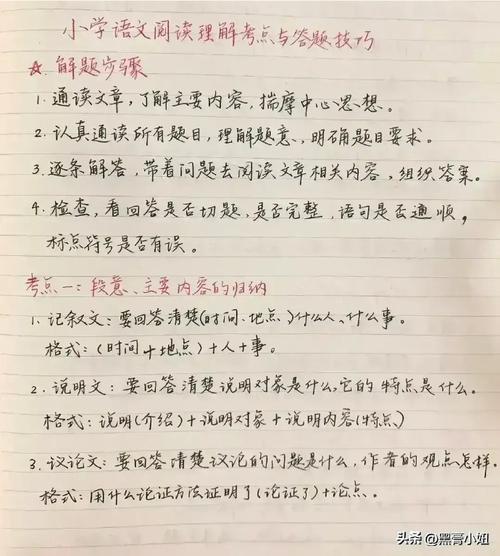 小学语文阅读理解考点与答题技巧
☆ 解题步骤
1. 通读文章,了解主要内容,揣摩中心思想。
2. 认真通读所有题目,理解题意,明确题目要求。
3. 逐条解答,带着问题去阅读文章相关内容,组织答案。
4. 检查,看回答是否切题,是否完整,语句是否通顺,
标点符号是否有误。
考点一:段意、主要内容的归纳
1. 记叙文:要回答清楚(时间、地点)什么人、什么事。
格式:(时间+地点)+人+事。
2. 说明文:要回答清楚说明对象是什么,它的特点是什么。
格式:说明(介绍)+说明对象+说明内容(特点)
3. 议论文:要回答清楚议论的问题是什么,作者的观点怎样。
格式:用什么论证方法证明了(论证了)+论点。
头条 @黑膏小姐